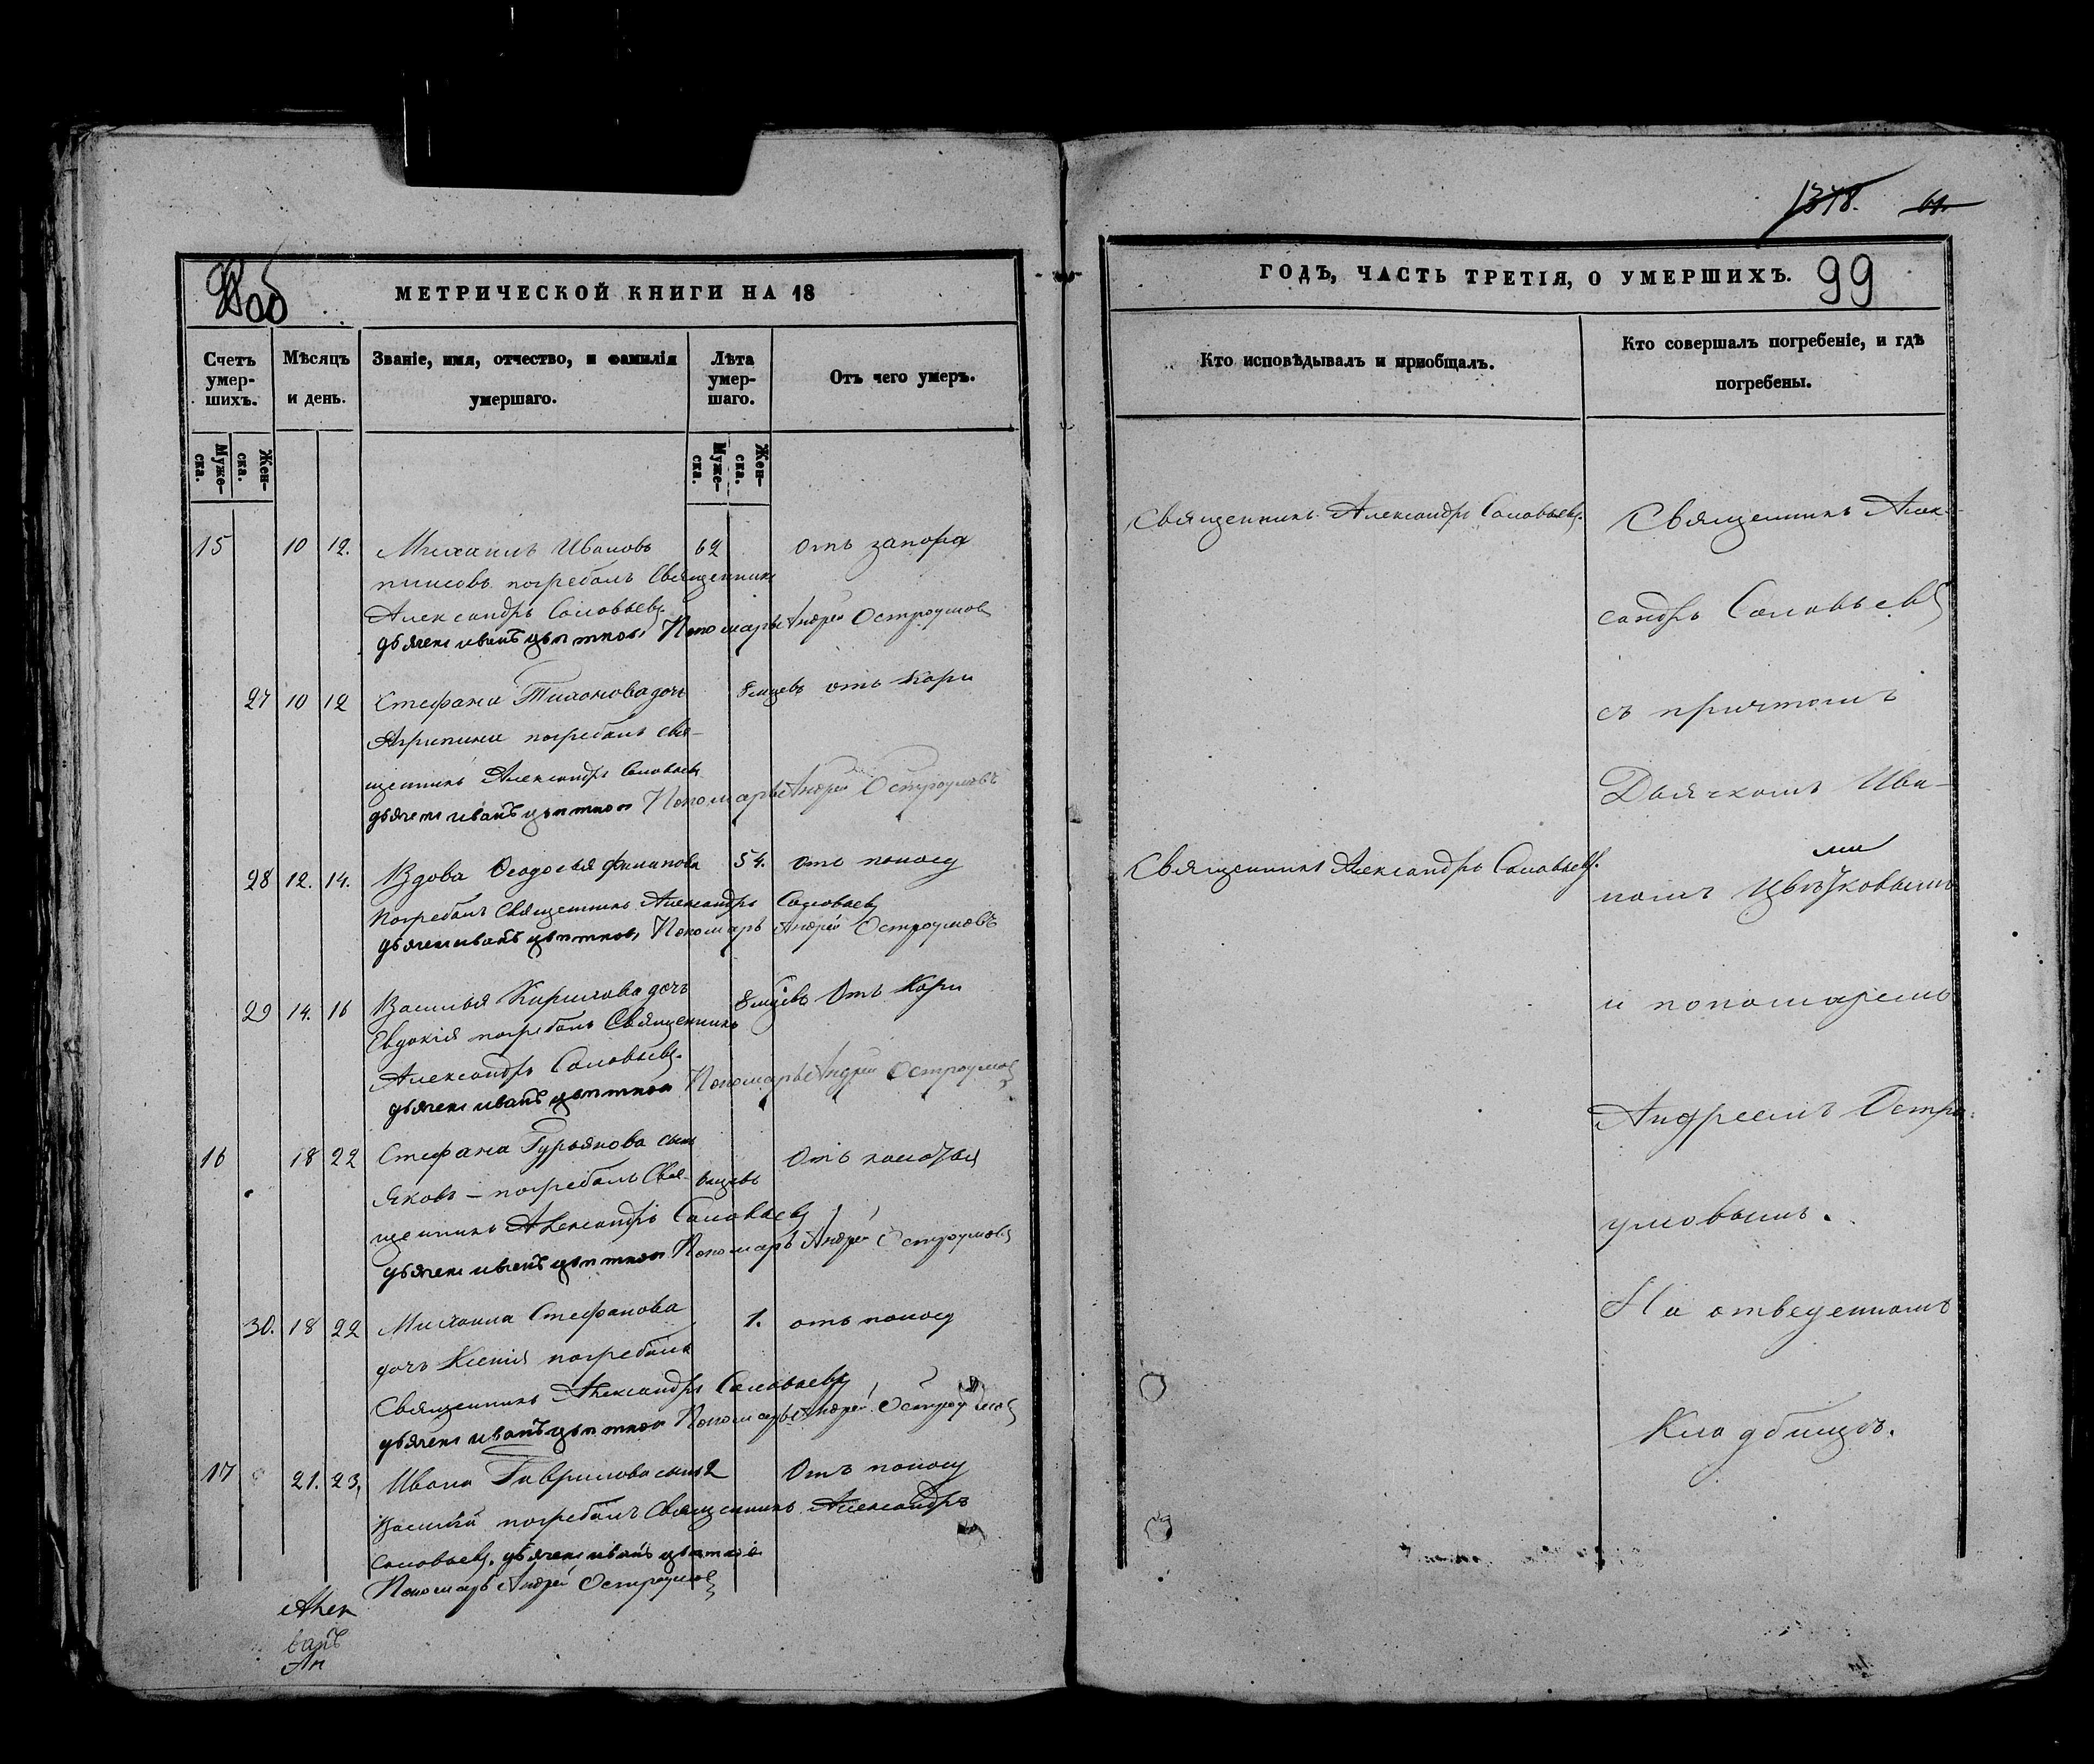 98об
МЕТРИЧЕСКОЙ КНИГИ НА 18
Счетъ умер-шихъ.
Мѣсяцъ и день.
Званіе, имя, отчество, и фамилія умершаго.
Лѣта умер-шаго.
Отъ чего умеръ.
Муже-ска.
Жен-ска.
Муже-ска.
Жен-ска.
15 10 12. Михаилъ Ивановъ 62 отъ запора
погребалъ Священникъ
Александръ Соловьевъ.
дьячекъ иванъ цвѣтковъ Пономарь Андрей Остроумовъ
27 10 12 Стефана Тихонова дочь 8 мцевъ отъ кори
Агрипина погребалъ свя-
щенникъ Александръ Соловьевъ
дьячекъ иванъ цвѣтковъ Пономарь Андрей Остроумовъ
28 12. 14. Вдова Ѳеодосья филипова 54. отъ поносу
Погребалъ Священникъ Александръ Соловьевъ
дьячекъ иванъ цвѣтковъ Пономарь Андрей Остроумовъ
29 14. 16 Василья Кирилова дочь 8 мцевъ Отъ Кори
Евдокія погребалъ Священникъ
Александръ Соловьевъ.
дьячекъ иванъ цвѣтковъ Пономарь Андрей Остроумовъ
16 18 22 Стефана Гурьянова сынъ Отъ колотья
Яковъ – погребалъ Свя- мцевъ
щенникъ Александръ Соловьевъ
дьячекъ иванъ цвѣтковъ Пономарь Андрей Остроумовъ
30. 18 22 Михаила Стефанова 1. отъ поносу
дочь Ксенія погребалъ
Священникъ Александръ Соловьевъ
дьячекъ иванъ цвѣтковъ Пономарь Андрей Остроумовъ
17 21. 23. Ивана Гаврилова сынъ 2 Отъ поносу
Василій погребалъ Священникъ Александръ
Соловьевъ. дьячекъ иванъ цвѣтковъ
Пономарь Андрей Остроумовъ
Алек
ванъ
Ан
1378.
ГОДЪ, ЧАСТЬ ТРЕТІЯ, О УМЕРШИХЪ. 99
Кто исповѣдывалъ и приобщалъ.
Кто совершалъ погребеніе, и гдѣ погребены.
Священникъ Александръ Соловьевъ.
Священникъ Александръ Соловьевъ.
Священникъ Алек-
сандръ Соловьевъ
съ причтомъ
Дьячкомъ Ива-
номъ Цвѣтковымъ
ми
и пономаремъ
Андреемъ Остро-
умовымъ.
На отведенномъ
Кладбищѣ.